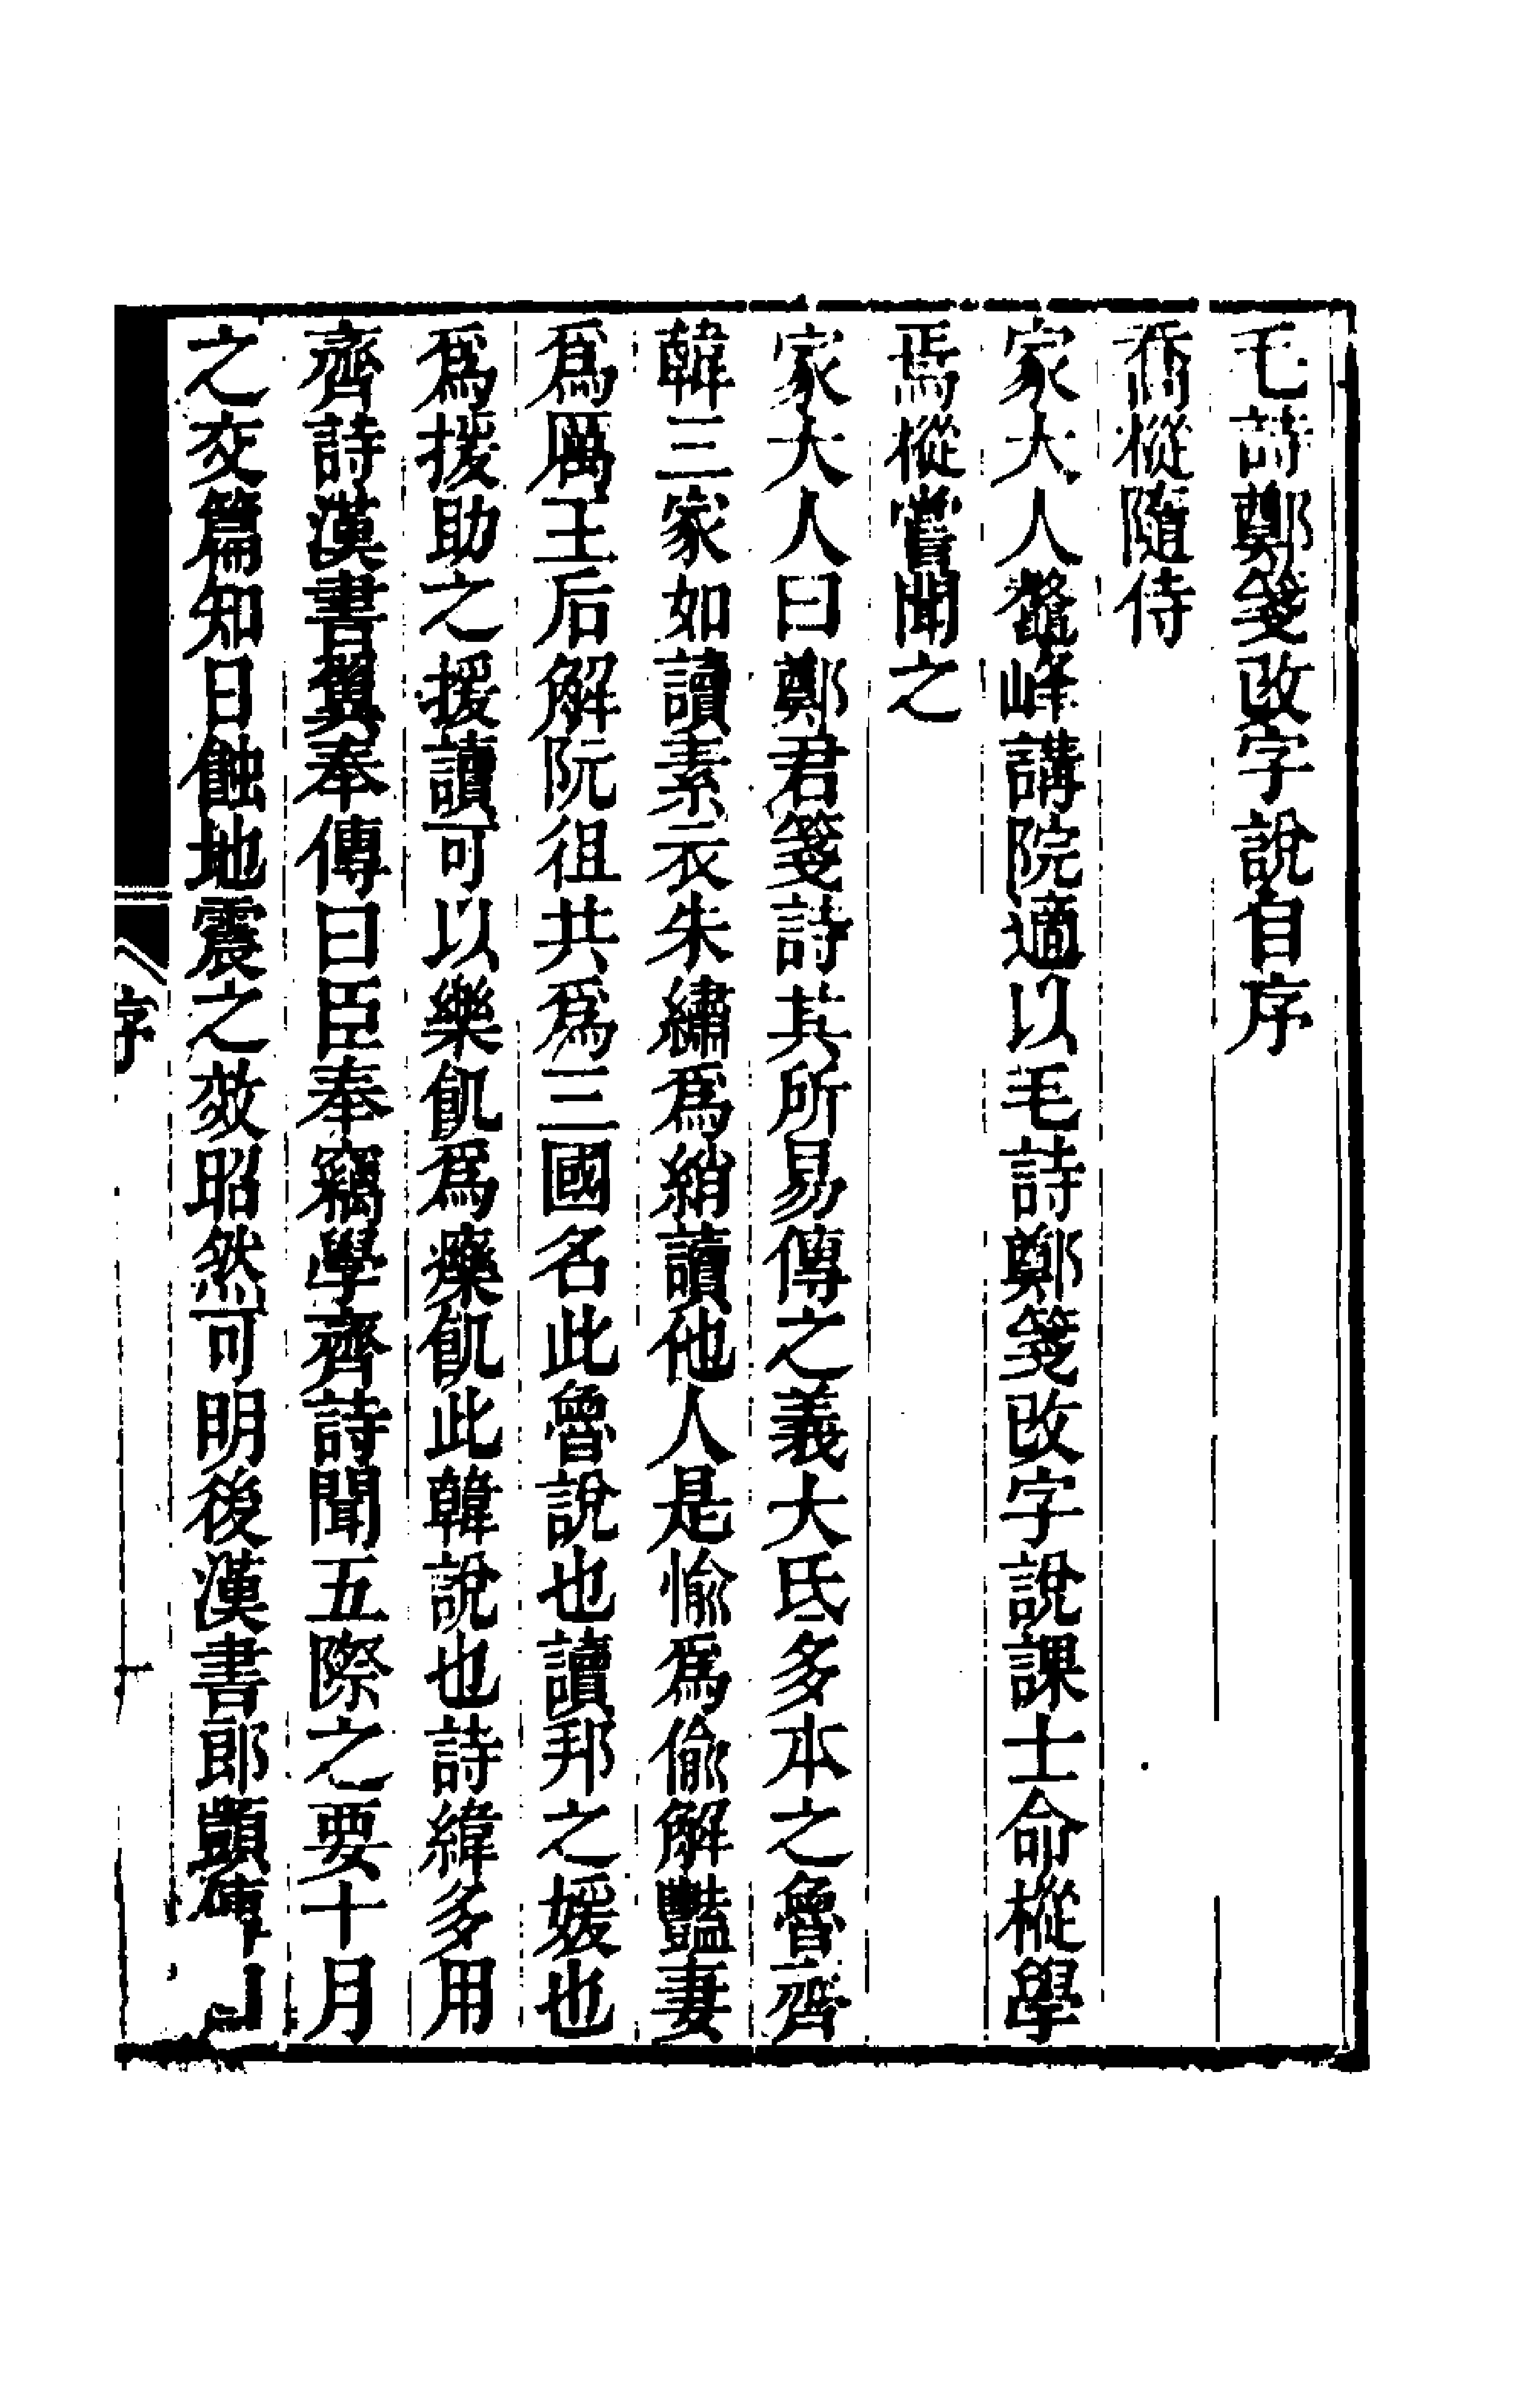 毛詩鄭箋改字說自序
喬樅隨侍
家大人鼇峰講院適以毛詩鄭箋改字說課士命樅學
焉樅嘗聞之
家大人曰鄭君箋詩其所易傳之義大氐多本之魯齊
韓三家如讀素衣朱繡爲綃讀他人是愉爲偷解豔妻
爲厲王后解阮徂共爲三國名此魯說也讀邦之媛也
爲援助之援讀可以樂飢爲𤻲飢此韓說也詩緯多用
齊詩漢書翼奉傳曰臣奉竊學齊詩聞五際之要十月
之交篇知日蝕地震之效昭然可明後漢書郎顗傳
序